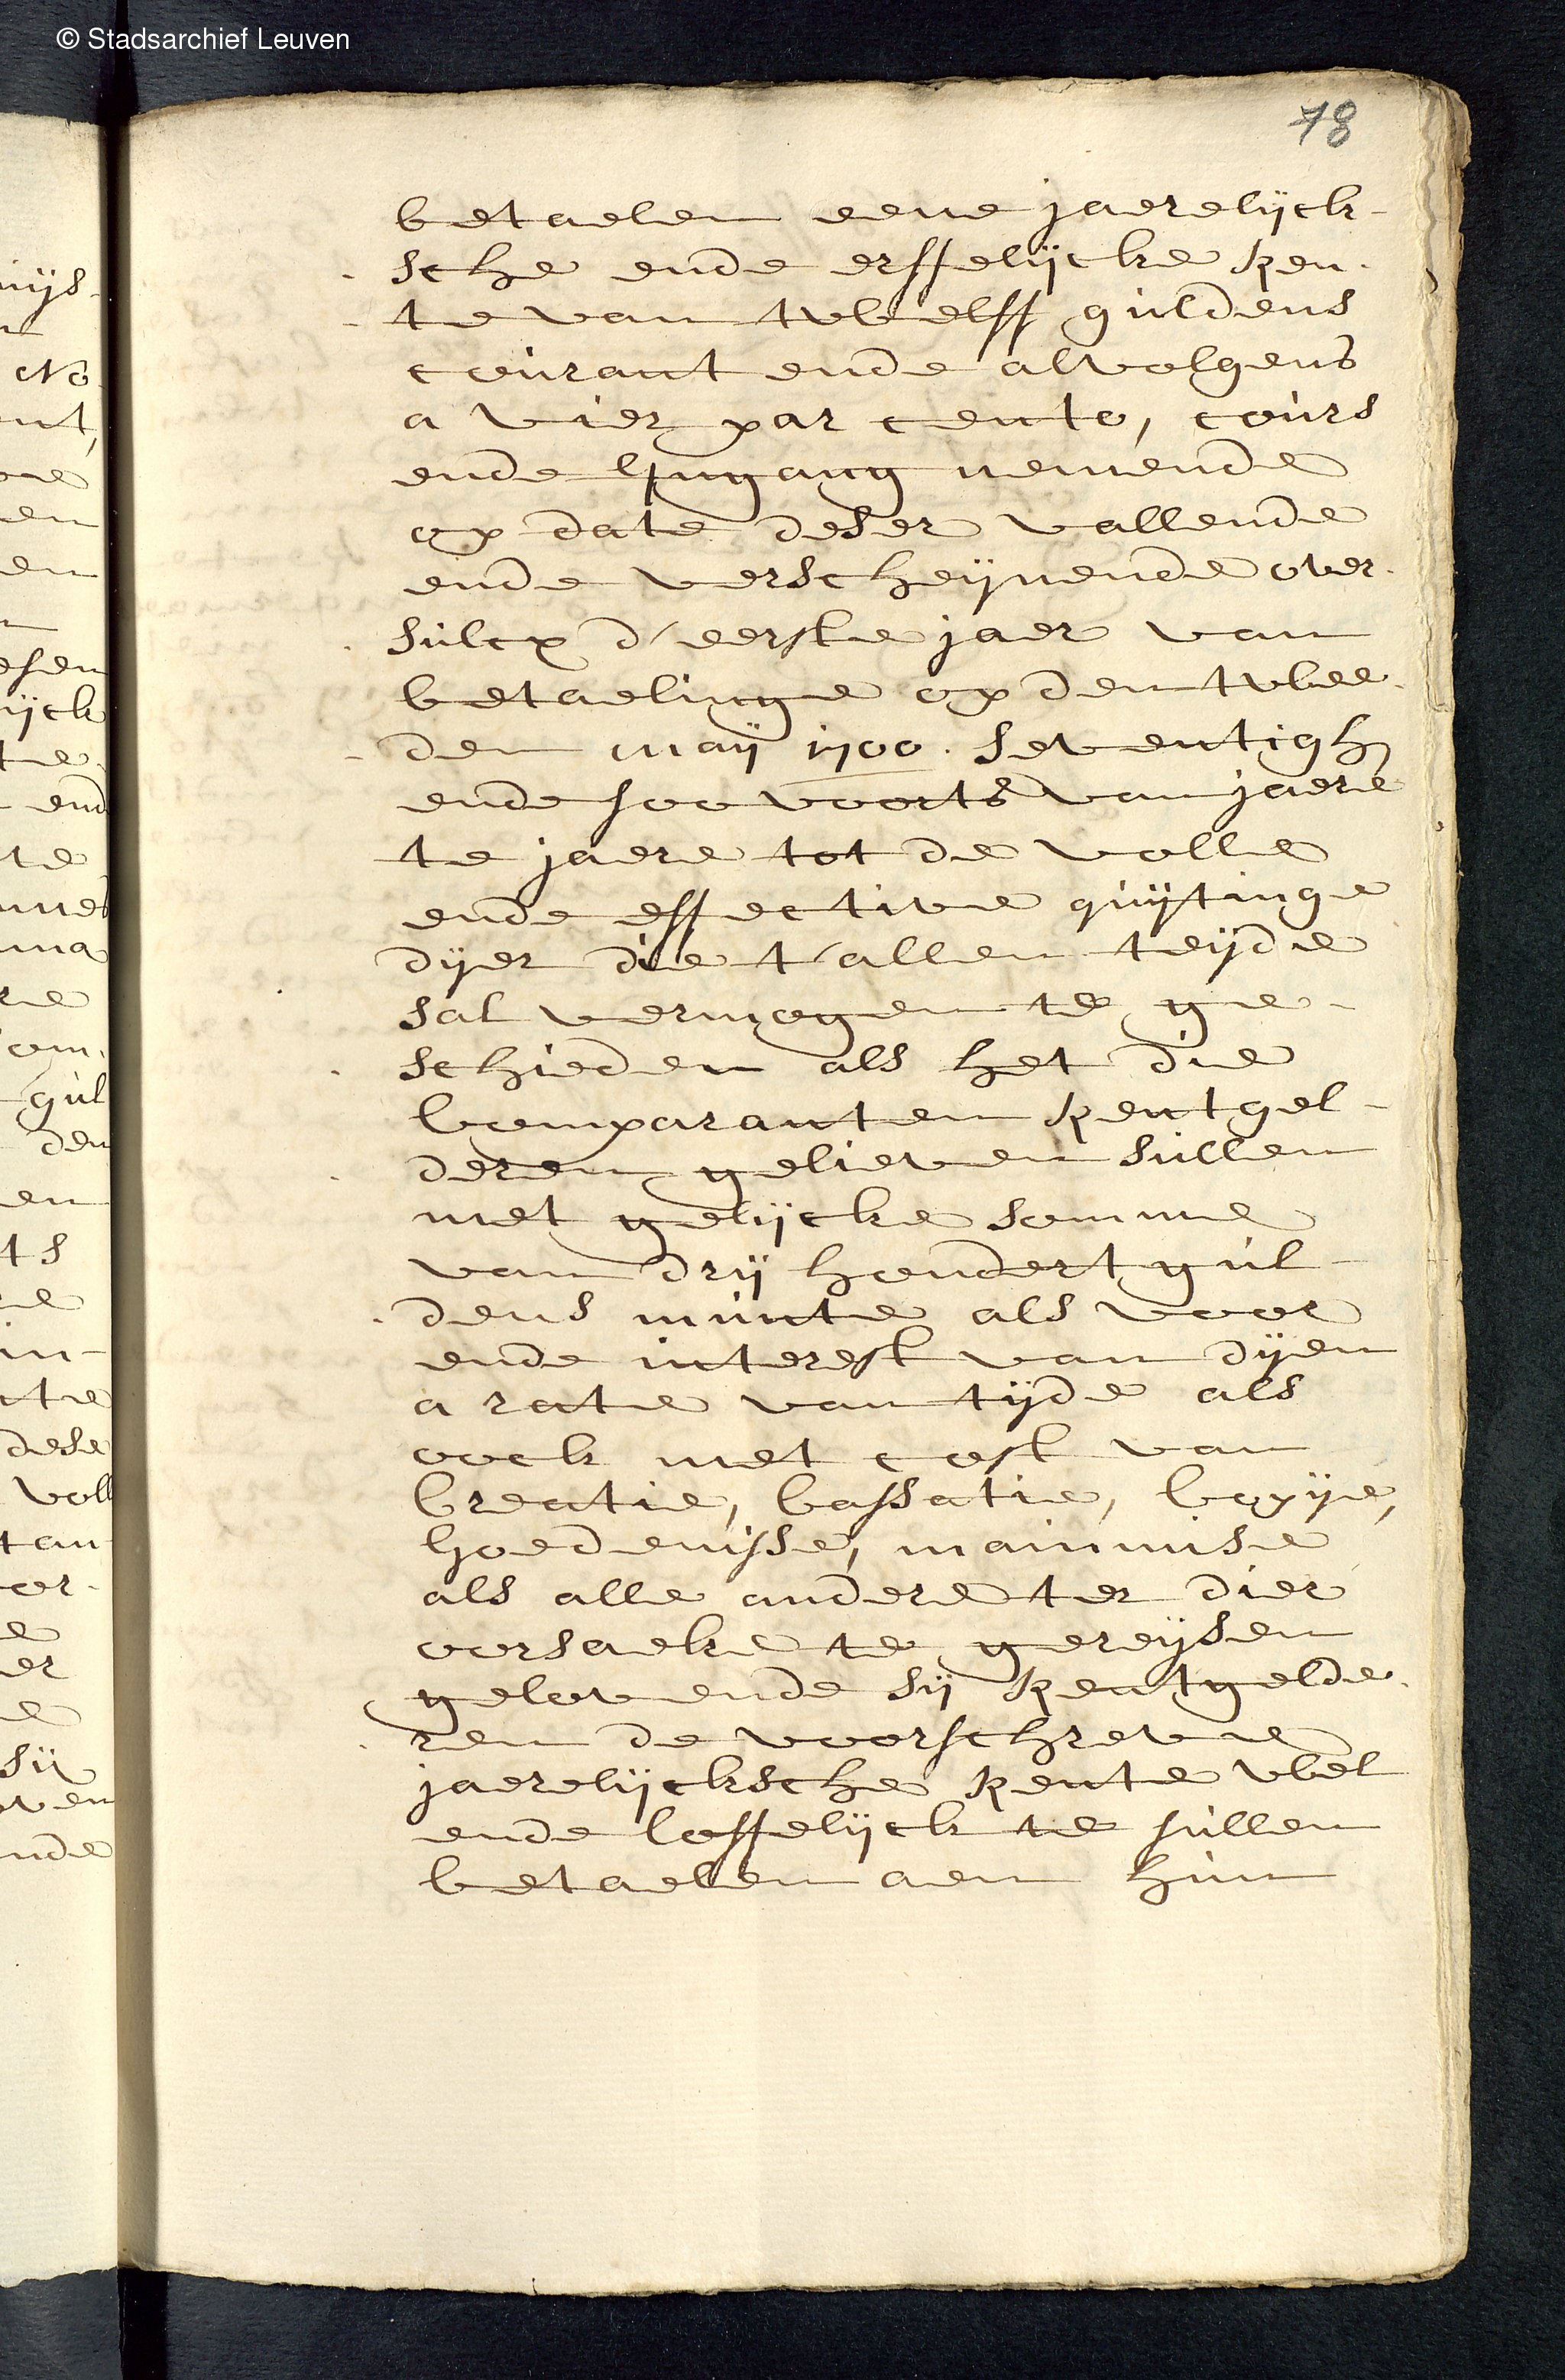 © Stadsarchief Leuven
78
betaelen eene jaerelijck-
sche ende erffelijcke Ren-
te van twelff guldens
courant ende alvolgens
a vier par cento, cours
ende Ingang nemende
op date deser vallende
ende verscheijnende over-
sulcx d'eerste jaer van
betaelinge op den twee-
den maij 1700. seventigh
ende soo voorts van jaere
te jaere tot de volle
ende effective quijtinge
dijer die t'allen teijde
sal vermogen te ge-
schieden als het die
Comparanten Rentgel-
deren gelieven sullen
met gelijcke somme
van drij hondert gul-
dens munte als voor
ende interest van dijen
a rate van tijde als
oock met cost van
Creatie, Cassatie, Copije,
hoedenisse, mainmise
als alle andere ter dier
oorsaeke te gereijsen
gelovende sij Rentgelde-
ren de voorschreve
jaerelijcksche Rente wel
ende loffelijck te sullen
betaelen aen hun